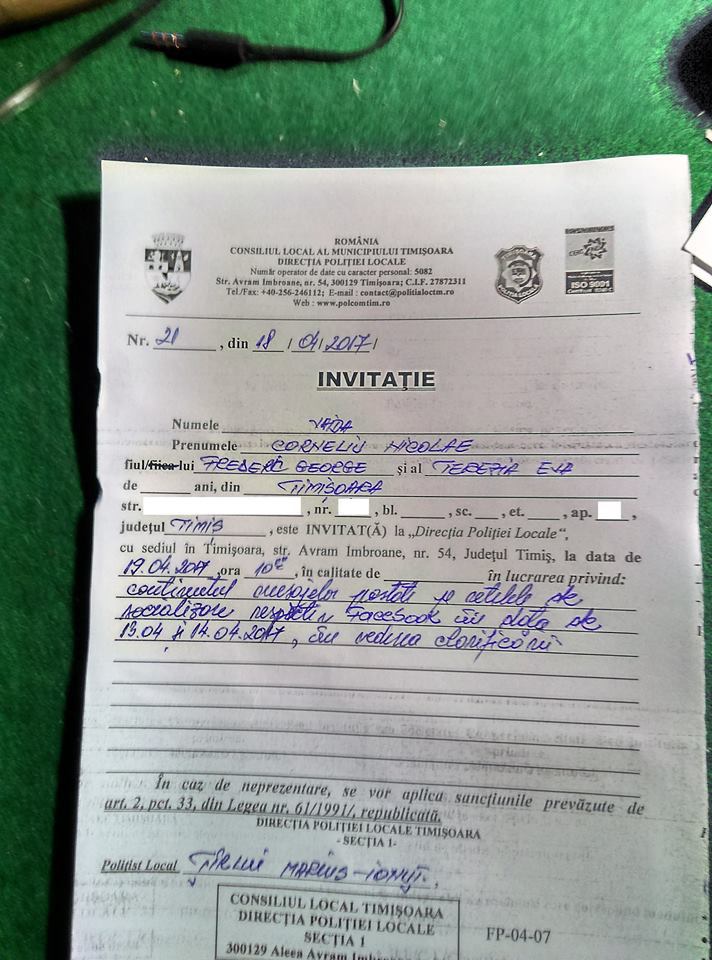 ROMÂNIA
CONSILIUL LOCAL AL MUNICIPIULUI TIMIȘOARA
DIRECȚIA POLIȚIEI LOCALE
Număr operator de date cu caracter personal: 5082
Str. Avram Imbroane, nr. 54, 300129 Timișoara; C.I.F. 27872311
Tel./Fax: +40-256-246112; E-mail : contact@politialoctm.ro
Web : www.polcomtim.ro
POLIȚIA LOCALĂ
ISO 9001
Nr. 21, din 18/04/2017/
INVITAȚIE
Numele VAIDA
Prenumele CORNELIU NICOLAE
fiul/fiica lui FREDERIC GEORGE și al TEREZIA EVA
de ani, din TIMIȘOARA
str. , nr. , bl. , sc. , et. , ap. ,
județul TIMIȘ, este INVITAT(Ă) la „Direcția Poliției Locale”,
cu sediul în Timișoara, str. Avram Imbroane, nr. 54, Județul Timiș, la data de
19.04.2017, ora 10⁰⁰, în calitate de în lucrarea privind:
conținutul mesajelor postate pe rețelele de
socializare respectiv Facebook în data de
13.04 și 14.04.2017, în vederea clarificării
În caz de neprezentare, se vor aplica sancțiunile prevăzute de
art. 2, pct. 33, din Legea nr. 61/1991/, republicată.
DIRECȚIA POLIȚIEI LOCALE TIMIȘOARA
- SECȚIA 1-
Polițist Local MARIUS-IONUȚ.
CONSILIUL LOCAL TIMIȘOARA
DIRECȚIA POLIȚIEI LOCALE
SECȚIA 1
300129 Aleea Avram Imbroane
FP-04-07